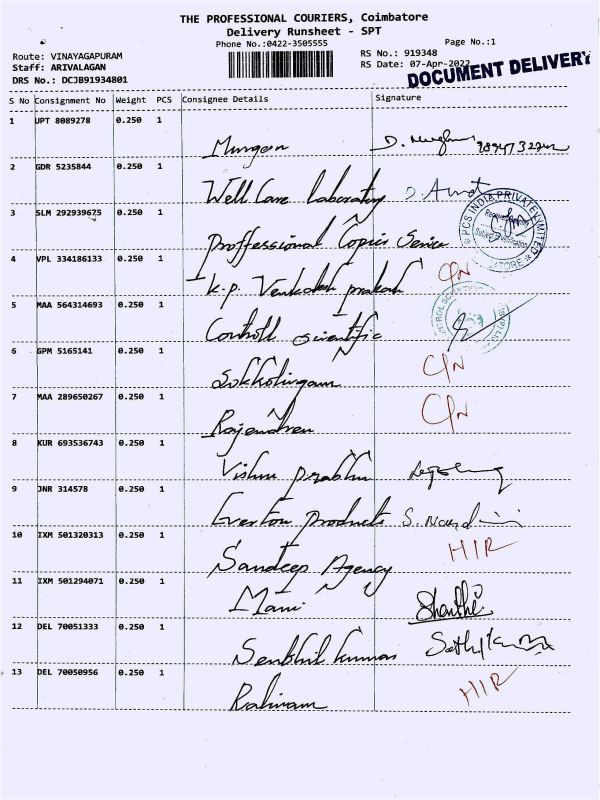 THE PROFESSIONAL COURIERS, Coimbatore
Delivery Runsheet - SPT
Phone No.:0422-3505555 Page No.:1
Route: VINAYAGAPURAM RS No.: 919348
Staff: ARIVALAGAN RS Date: 07-Apr-2022
DRS No.: DCJB91934801 DOCUMENT DELIVERY
S No Consignment No Weight PCS Consignee Details Signature
1 UPT 8089278 0.250 1
Murugan D.
2 GDR 5235844 0.250 1
Well Care Laboratory D.
3 SLM 292939675 0.250 1
PCS INDIA PRIVATE LIMITED
Proffessional Copies Service
4 VPL 334186133 0.250 1
K.P. Venkatesh prakash C/N
5 MAA 564314693 0.250 1
Controll scientific
6 GPM 5165141 0.250 1
C/N
7 MAA 289650267 0.250 1
Rajendren C/N
8 KUR 693536743 0.250 1
Vishnu prabhu
9 JNR 314578 0.250 1
Everton Products S. Nandini
10 IXM 501320313 0.250 1
Sandeep Agency HIR
11 IXM 501294071 0.250 1
Mani Shanthi
12 DEL 70051333 0.250 1
Senthil kumar
13 DEL 70050956 0.250 1
HIR